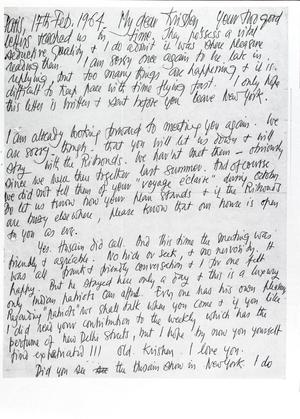 Paris, 17th Feb. 1964. My dear Krishen Your two good
letters reached us in time. They possess a vital
seductive quality & I do admit it was sheer pleasure
reading them. I am sorry once again to be late in
replying but too many things are happening & it is
difficult to keep pace with time flying fast. I only hope
this letter is written & sent before you leave New York.
I am already looking forward to meeting you again. We
are sorry though that you will let us down & will
stay with the obviously
Since we were there together last summer. And of course
we did not tell them of your "voyage éclair" during october
Do let us know how your plan stands & if the
are busy elsewhere, please know that our house is open
to you as ever.
Yes. Husain did call. And this time the meeting was
friendly & agreable. No hide or seek, & no nervosity. It
was all frank & friendly conversation & I for one felt
happy. But he stayed here only a day & this is a luxury
only Indian painters can afford. Every one has his own
we shall talk when you come & if you like.
I did read your contribution to the weekly which has the
perfume of new Delhi streets, but I hope by now you yourself
find explanation!!! old. Krishen. I love you.
Did you see the Husain show in New York. I do